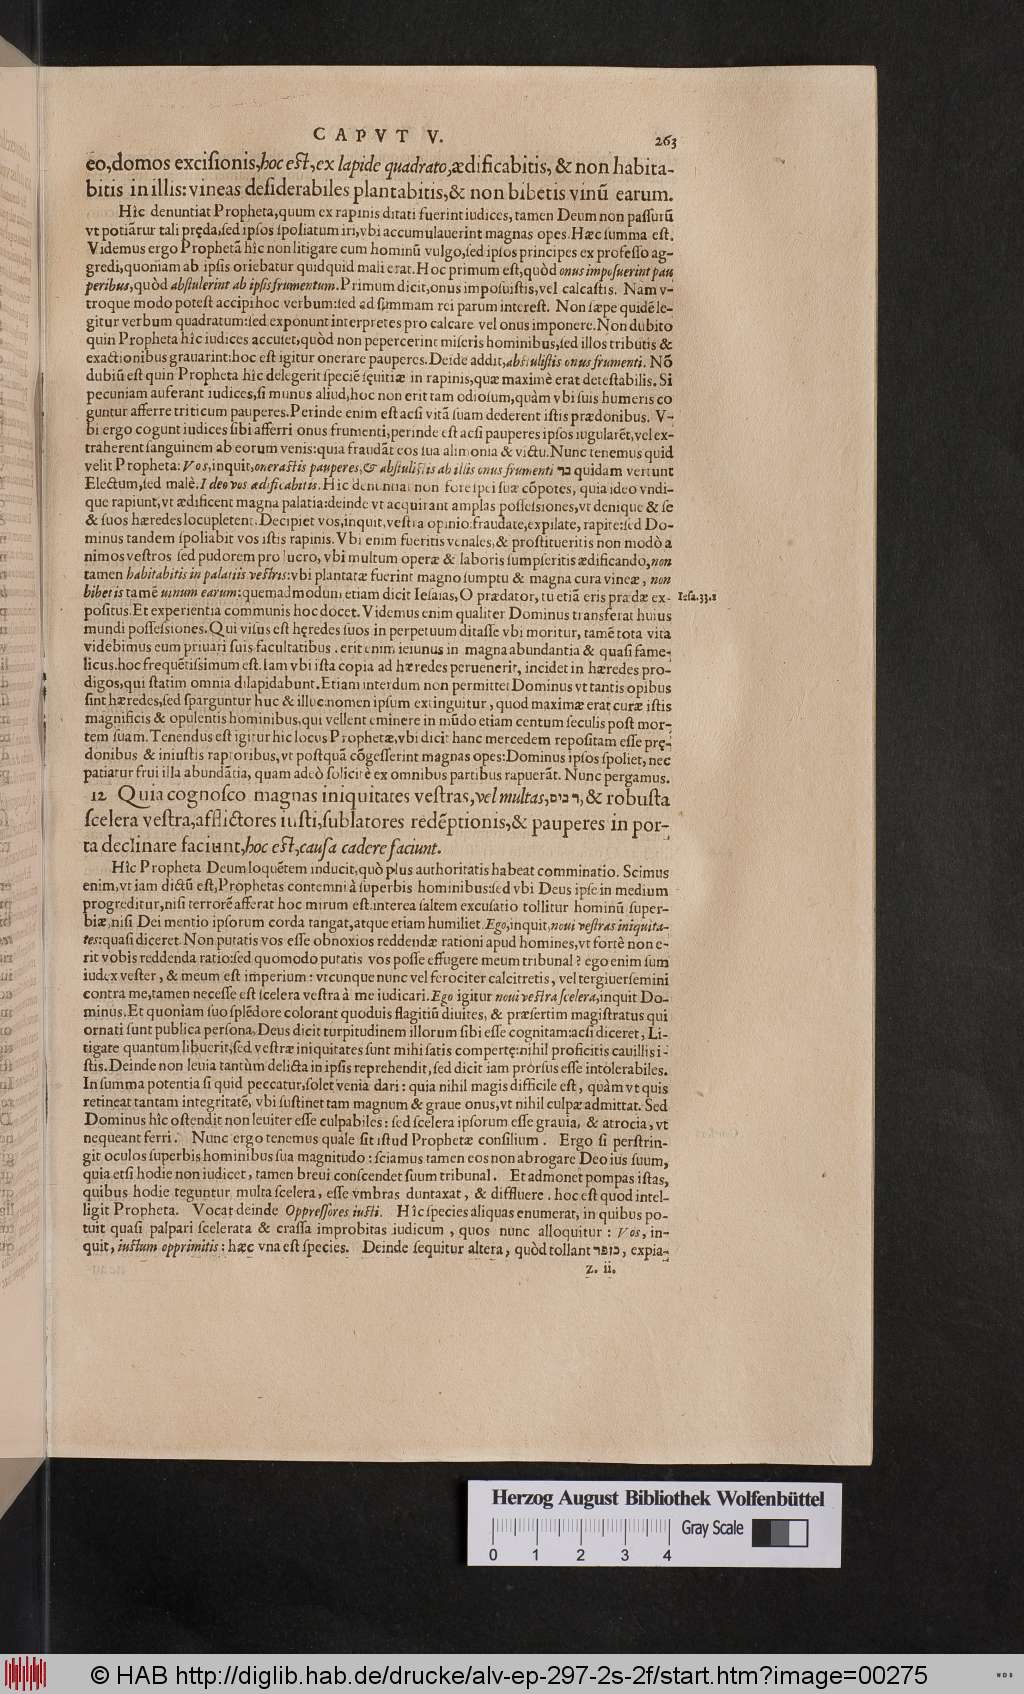 CAPVT V. 263
eo,domos excisionis,hoc est,ex lapide quadrato,ædificabitis, & non habita-
bitis in illis: vineas desiderabiles plantabitis,& non bibetis vinū earum.
Hîc denuntiat Propheta,quum ex rapinis ditati fuerint iudices, tamen Deum non passurū
vt potiātur tali pręda,sed ipsos spoliatum iri,vbi accumulauerint magnas opes. Hæc summa est.
Videmus ergo Prophetā hîc non litigare cum hominū vulgo,sed ipsos principes ex professo ag-
gredi,quoniam ab ipsis oriebatur quidquid mali erat. Hoc primum est,quòd onus imposuerint pau
peribus,quòd abstulerint ab ipsis frumentum. Primum dicit,onus imposuistis,vel calcastis. Nam v-
troque modo potest accipi hoc verbum:sed ad summam rei parum interest. Non sæpe quidē le-
gitur verbum quadratum:sed exponunt interpretes pro calcare vel onus imponere. Non dubito
quin Propheta hîc iudices accuset,quòd non pepercerint miseris hominibus,sed illos tributis &
exactionibus grauarint:hoc est igitur onerare pauperes. Deīde addit,abstulistis onus frumenti. Nō
dubiū est quin Propheta hîc delegerit speciē sęuitiæ in rapinis,quæ maximè erat detestabilis. Si
pecuniam auferant iudices,si munus aliud,hoc non erit tam odiosum,quàm vbi suis humeris co
guntur afferre triticum pauperes. Perinde enim est acsi vitā suam dederent istis prædonibus. V-
bi ergo cogunt iudices sibi afferri onus frumenti,perinde est acsi pauperes ipsos iugularēt,vel ex-
traherent sanguinem ab eorum venis:quia fraudāt eos sua alimonia & victu. Nunc tenemus quid
velit Propheta: Vos,inquit,onerastis pauperes,& abstulistis ab illis onus frumenti בר quidam vertunt
Electum,sed malè. Ideo vos ædificabitis. Hîc denuntiat non fore ipsi suæ cōpotes, quia ideo vndi-
que rapiunt,vt ædificent magna palatia:deinde vt acquirant amplas possessiones,vt denique & se
& suos hæredes locupletent. Decipiet vos,inquit,vestra opinio:fraudate,expilate, rapite:sed Do-
minus tandem spoliabit vos istis rapinis. Vbi enim fueritis venales,& prostitueritis non modò a
nimos vestros sed pudorem pro lucro, vbi multum operæ & laboris sumpseritis ædificando,non
tamen habitabitis in palatiis vestris:vbi plantatæ fuerint magno sumptu & magna cura vineæ, non
bibetis tamē uinum earum:quemadmodum etiam dicit Iesaias,O prædator, tu etiā eris prædæ ex- Iesa.33.1
positus. Et experientia communis hoc docet. Videmus enim qualiter Dominus transferat huius
mundi possessiones. Qui visus est hęredes suos in perpetuum ditasse vbi moritur, tamē tota vita
videbimus eum priuari suis facultatibus . erit enim ieiunus in magna abundantia & quasi fame-
licus. hoc frequētissimum est. Iam vbi ista copia ad hæredes peruenerit, incidet in hæredes pro-
digos,qui statim omnia dilapidabunt. Etiam interdum non permittet Dominus vt tantis opibus
sint hæredes,sed sparguntur huc & illuc:nomen ipsum extinguitur , quod maximæ erat curæ istis
magnificis & opulentis hominibus,qui vellent eminere in mūdo etiam centum seculis post mor-
tem suam. Tenendus est igitur hic locus Prophetæ,vbi dicit hanc mercedem repositam esse prę-
donibus & iniustis raptoribus,vt postquā cōgesserint magnas opes:Dominus ipsos spoliet, nec
patiatur frui illa abundātia, quam adeò solicitè ex omnibus partibus rapuerāt. Nunc pergamus.
12 Quia cognosco magnas iniquitates vestras,vel multas,רבים, & robusta
scelera vestra,afflictores iusti,sublatores redēptionis,& pauperes in por-
ta declinare faciunt,hoc est,causa cadere faciunt.
Hîc Propheta Deum loquētem inducit,quò plus authoritatis habeat comminatio. Scimus
enim,vt iam dictū est,Prophetas contemni à superbis hominibus:sed vbi Deus ipse in medium
progreditur,nisi terrorē afferat hoc mirum est.interea saltem excusatio tollitur hominū super-
biæ,nisi Dei mentio ipsorum corda tangat,atque etiam humiliet. Ego,inquit,noui vestras iniquita-
tes:quasi diceret Non putatis vos esse obnoxios reddendæ rationi apud homines,vt fortè non e-
rit vobis reddenda ratio:sed quomodo putatis vos posse effugere meum tribunal ? ego enim sum
iudex vester , & meum est imperium : vtcunque nunc vel ferociter calcitretis , vel tergiuersemini
contra me,tamen necesse est scelera vestra à me iudicari. Ego igitur noui vestra scelera,inquit Do-
minus. Et quoniam suo splēdore colorant quoduis flagitiū diuites, & præsertim magistratus qui
ornati sunt publica persona, Deus dicit turpitudinem illorum sibi esse cognitam:acsi diceret, Li-
tigate quantum libuerit,sed vestræ iniquitates sunt mihi satis compertę:nihil proficitis cauillis i-
stis. Deinde non leuia tantùm delicta in ipsis reprehendit,sed dicit iam prorsus esse intolerabiles.
In summa potentia si quid peccatur,solet venia dari : quia nihil magis difficile est , quàm vt quis
retineat tantam integritatē, vbi sustinet tam magnum & graue onus,vt nihil culpæ admittat. Sed
Dominus hîc ostendit non leuiter esse culpabiles : sed scelera ipsorum esse grauia, & atrocia, vt
nequeant ferri . Nunc ergo tenemus quale sit istud Prophetæ consilium . Ergo si perstrin-
git oculos superbis hominibus sua magnitudo : sciamus tamen eos non abrogare Deo ius suum,
quia etsi hodie non iudicet , tamen breui conscendet suum tribunal . Et admonet pompas istas,
quibus hodie teguntur multa scelera , esse vmbras duntaxat , & diffluere . hoc est quod intel-
ligit Propheta. Vocat deinde Oppressores iusti. Hîc species aliquas enumerat, in quibus po-
tuit quasi palpari scelerata & crassa improbitas iudicum , quos nunc alloquitur : Vos, in-
quit, iustum opprimitis : hæc vna est species. Deinde sequitur altera , quòd tollant כופר , expia-
z. ii.
Herzog August Bibliothek Wolfenbüttel
Gray Scale
0 1 2 3 4
© HAB http://diglib.hab.de/drucke/alv-ep-297-2s-2f/start.htm?image=00275
WDB